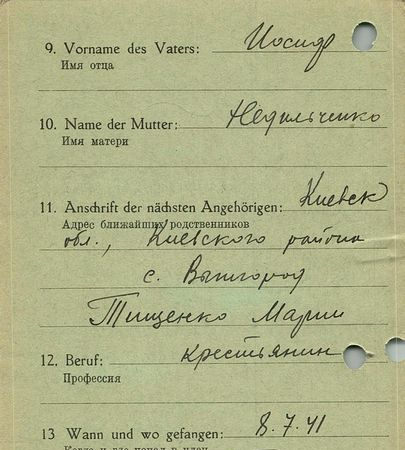 9. Vorname des Vaters: Иосиф
Имя отца
10. Name der Mutter: Недильченко
Имя матери
11. Anschrift der nächsten Angehörigen: Киевск
Адрес ближайших родственников
обл., Киевского района
с. Вышгород
Тищенко Марии
12. Beruf: крестьянин
Профессия
13 Wann und wo gefangen: 8.7.41
Когда и где попал в плен